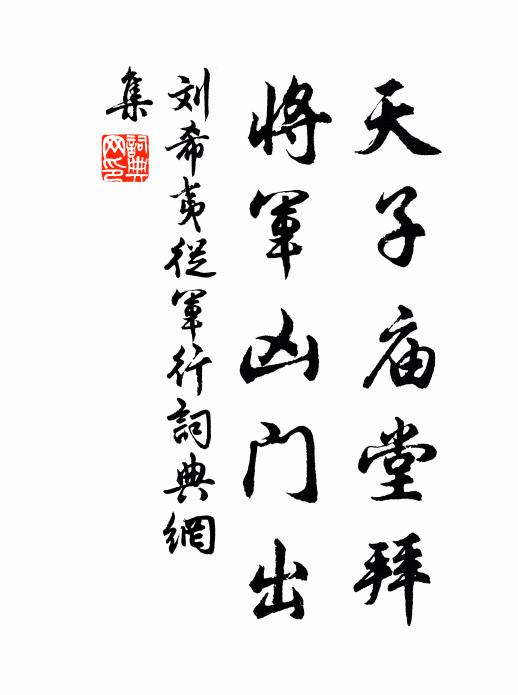 天子庙堂拜
將軍凶门出
刘希夷從軍行詞典網
集
詞典
网印